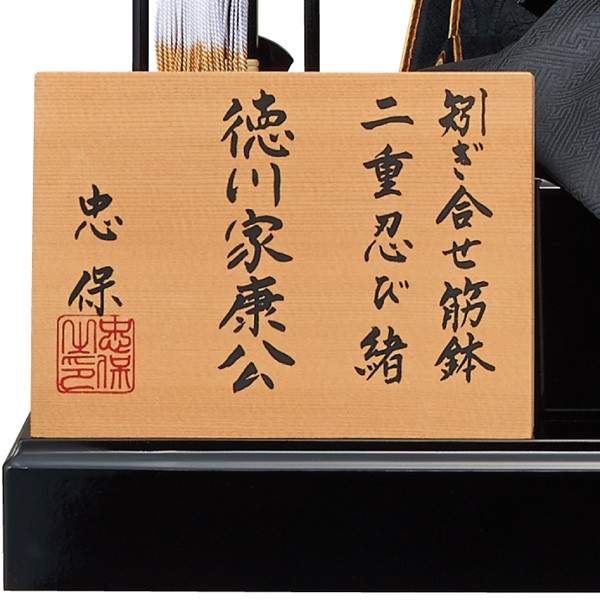 矧ぎ合せ筋鉢
二重忍び緒
徳川家康公
忠保
忠保之印